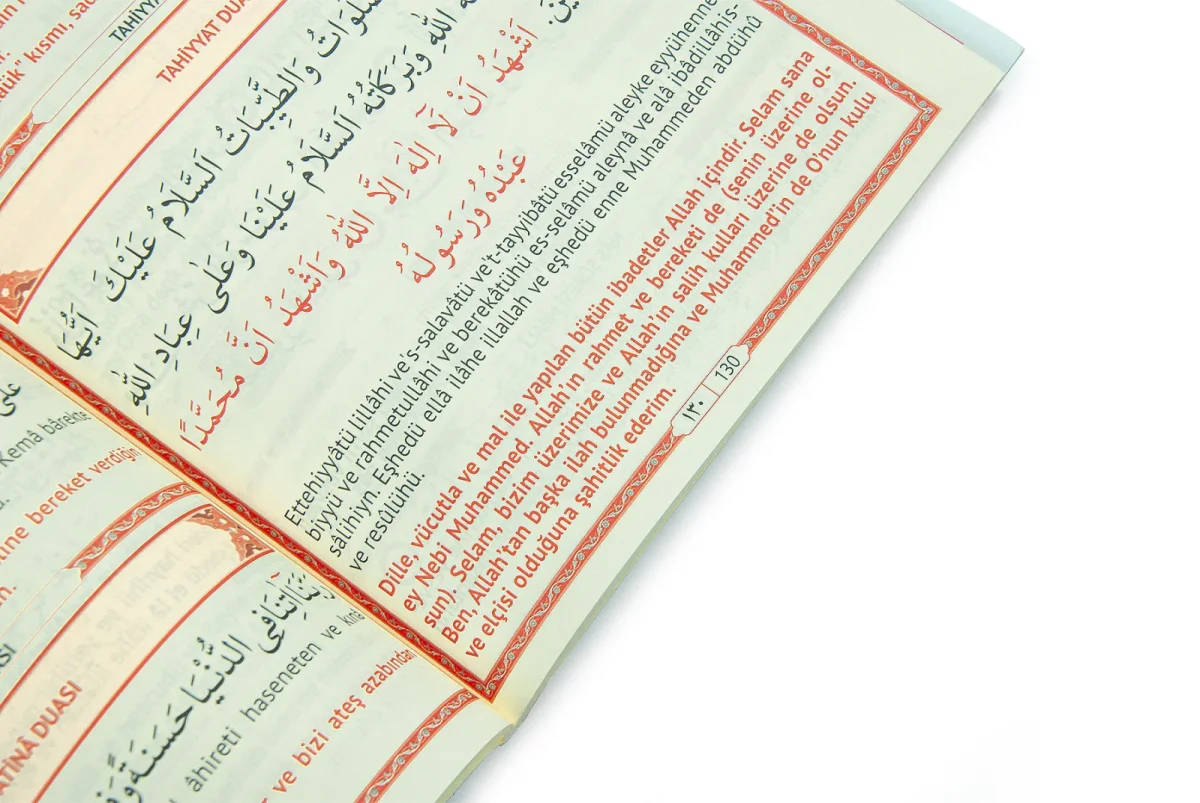 dük" kısmı,
TAHİYYA
TAHİYYAT DUA
وَالطَّيِّبَاتُ اَلسَّلَامُ عَلَيْكَ اَيُّهَا
اللّٰهِ وَبَرَكَاتُهُ اَلسَّلَامُ عَلَيْنَا وَعَلٰى عِبَادِ اللّٰهِ
اَشْهَدُ اَنْ لَٓا اِلٰهَ اِلَّا اللّٰهُ وَاَشْهَدُ اَنَّ مُحَمَّدًا
عَبْدُهُ وَرَسُولُهُ
Ettehiyyâtü lillâhi ve's-salavâtü ve't-tayyibâtü esselâmü aleyke eyyühenne-
biyyü ve rahmetullâhi ve berekâtühü es-selâmü aleynâ ve alâ ibâdillâhis-
sâlihiyn. Eşhedü ellâ ilâhe illallah ve eşhedü enne Muhammeden abdühû
ve resûlühü.
Dille, vücutla ve mal ile yapılan bütün ibadetler Allah içindir. Selam sana
ey Nebi Muhammed. Allah'ın rahmet ve bereketi de (senin üzerine ol-
sun). Selam, bizim üzerimize ve Allah'ın salih kulları üzerine de olsun.
Ben, Allah'tan başka ilah bulunmadığına ve Muhammed'in de O'nun kulu
ve elçisi olduğuna şahitlik ederim.
١٣٠ 130
عَلٰى
Kemâ bârekte
bereket verdiğin
ATİNÂ DUASI
اٰتِنَا فِي الدُّنْيَا حَسَنَةً وَفِ
âhireti haseneten ve kınâ
ve bizi ateş azabından